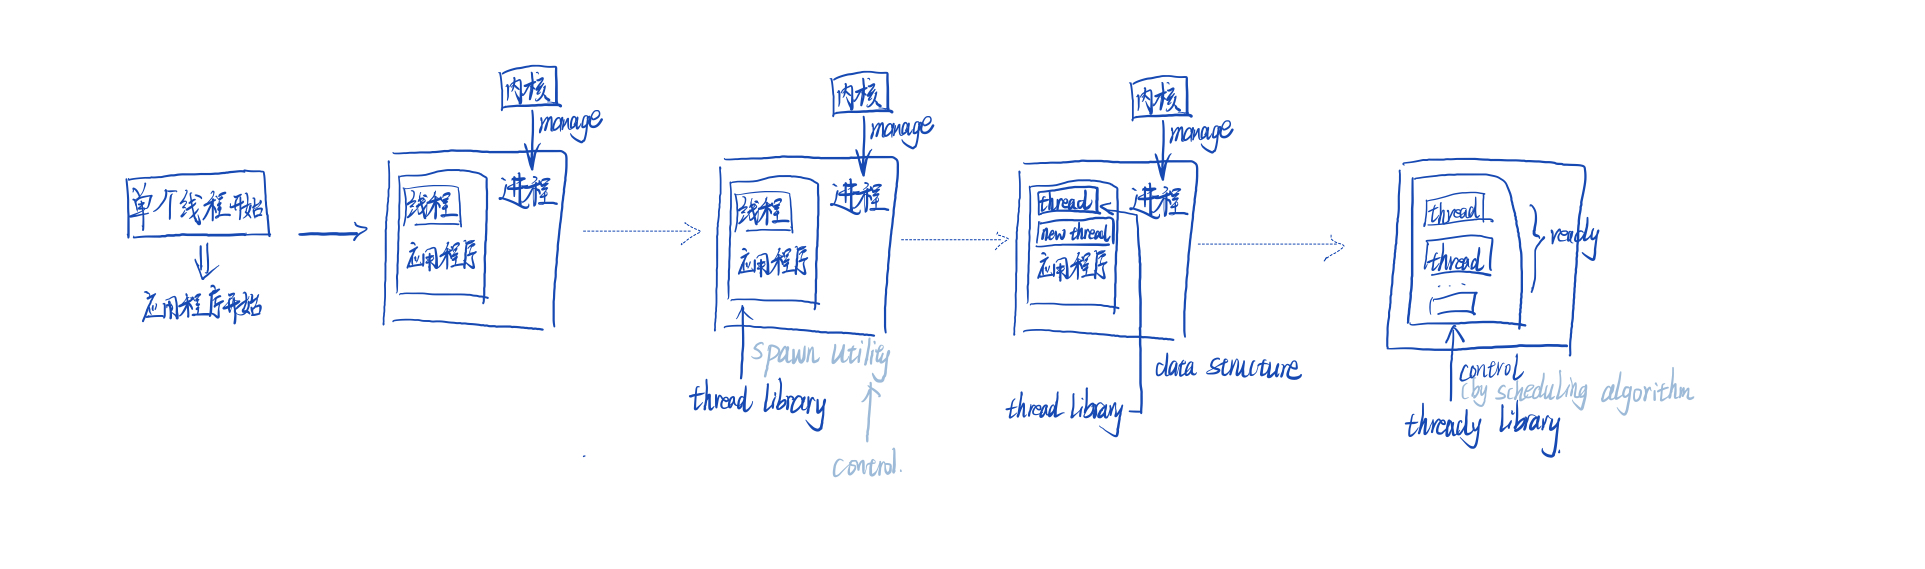 单个线程开始
应用程序开始
内核
manage
进程
线程
应用程序
内核
manage
进程
线程
应用程序
spawn utility
thread library
control.
内核
manage
进程
thread
new thread
应用程序
data structure
thread library
thread
thread
...
ready
control
(by scheduling algorithm
thready library.